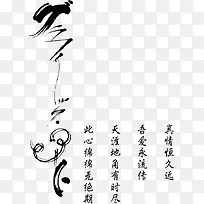 真情恒久远
吾爱永流传
天涯地角有时尽
此心绵绵无绝期